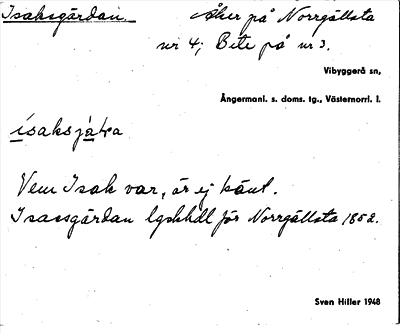 Isaksgårdan.
Åker på Norrgällsta
nr 4; Bete på nr 3.
Vibyggerå sn,
Ångermanl. s. doms. tg., Västernorrl. l.
ísaksjàṛa
Vem Isak var, är ej känt.
Isassgårdan lgskhdl för Norrgällsta 1852.
Sven Hiller 1948